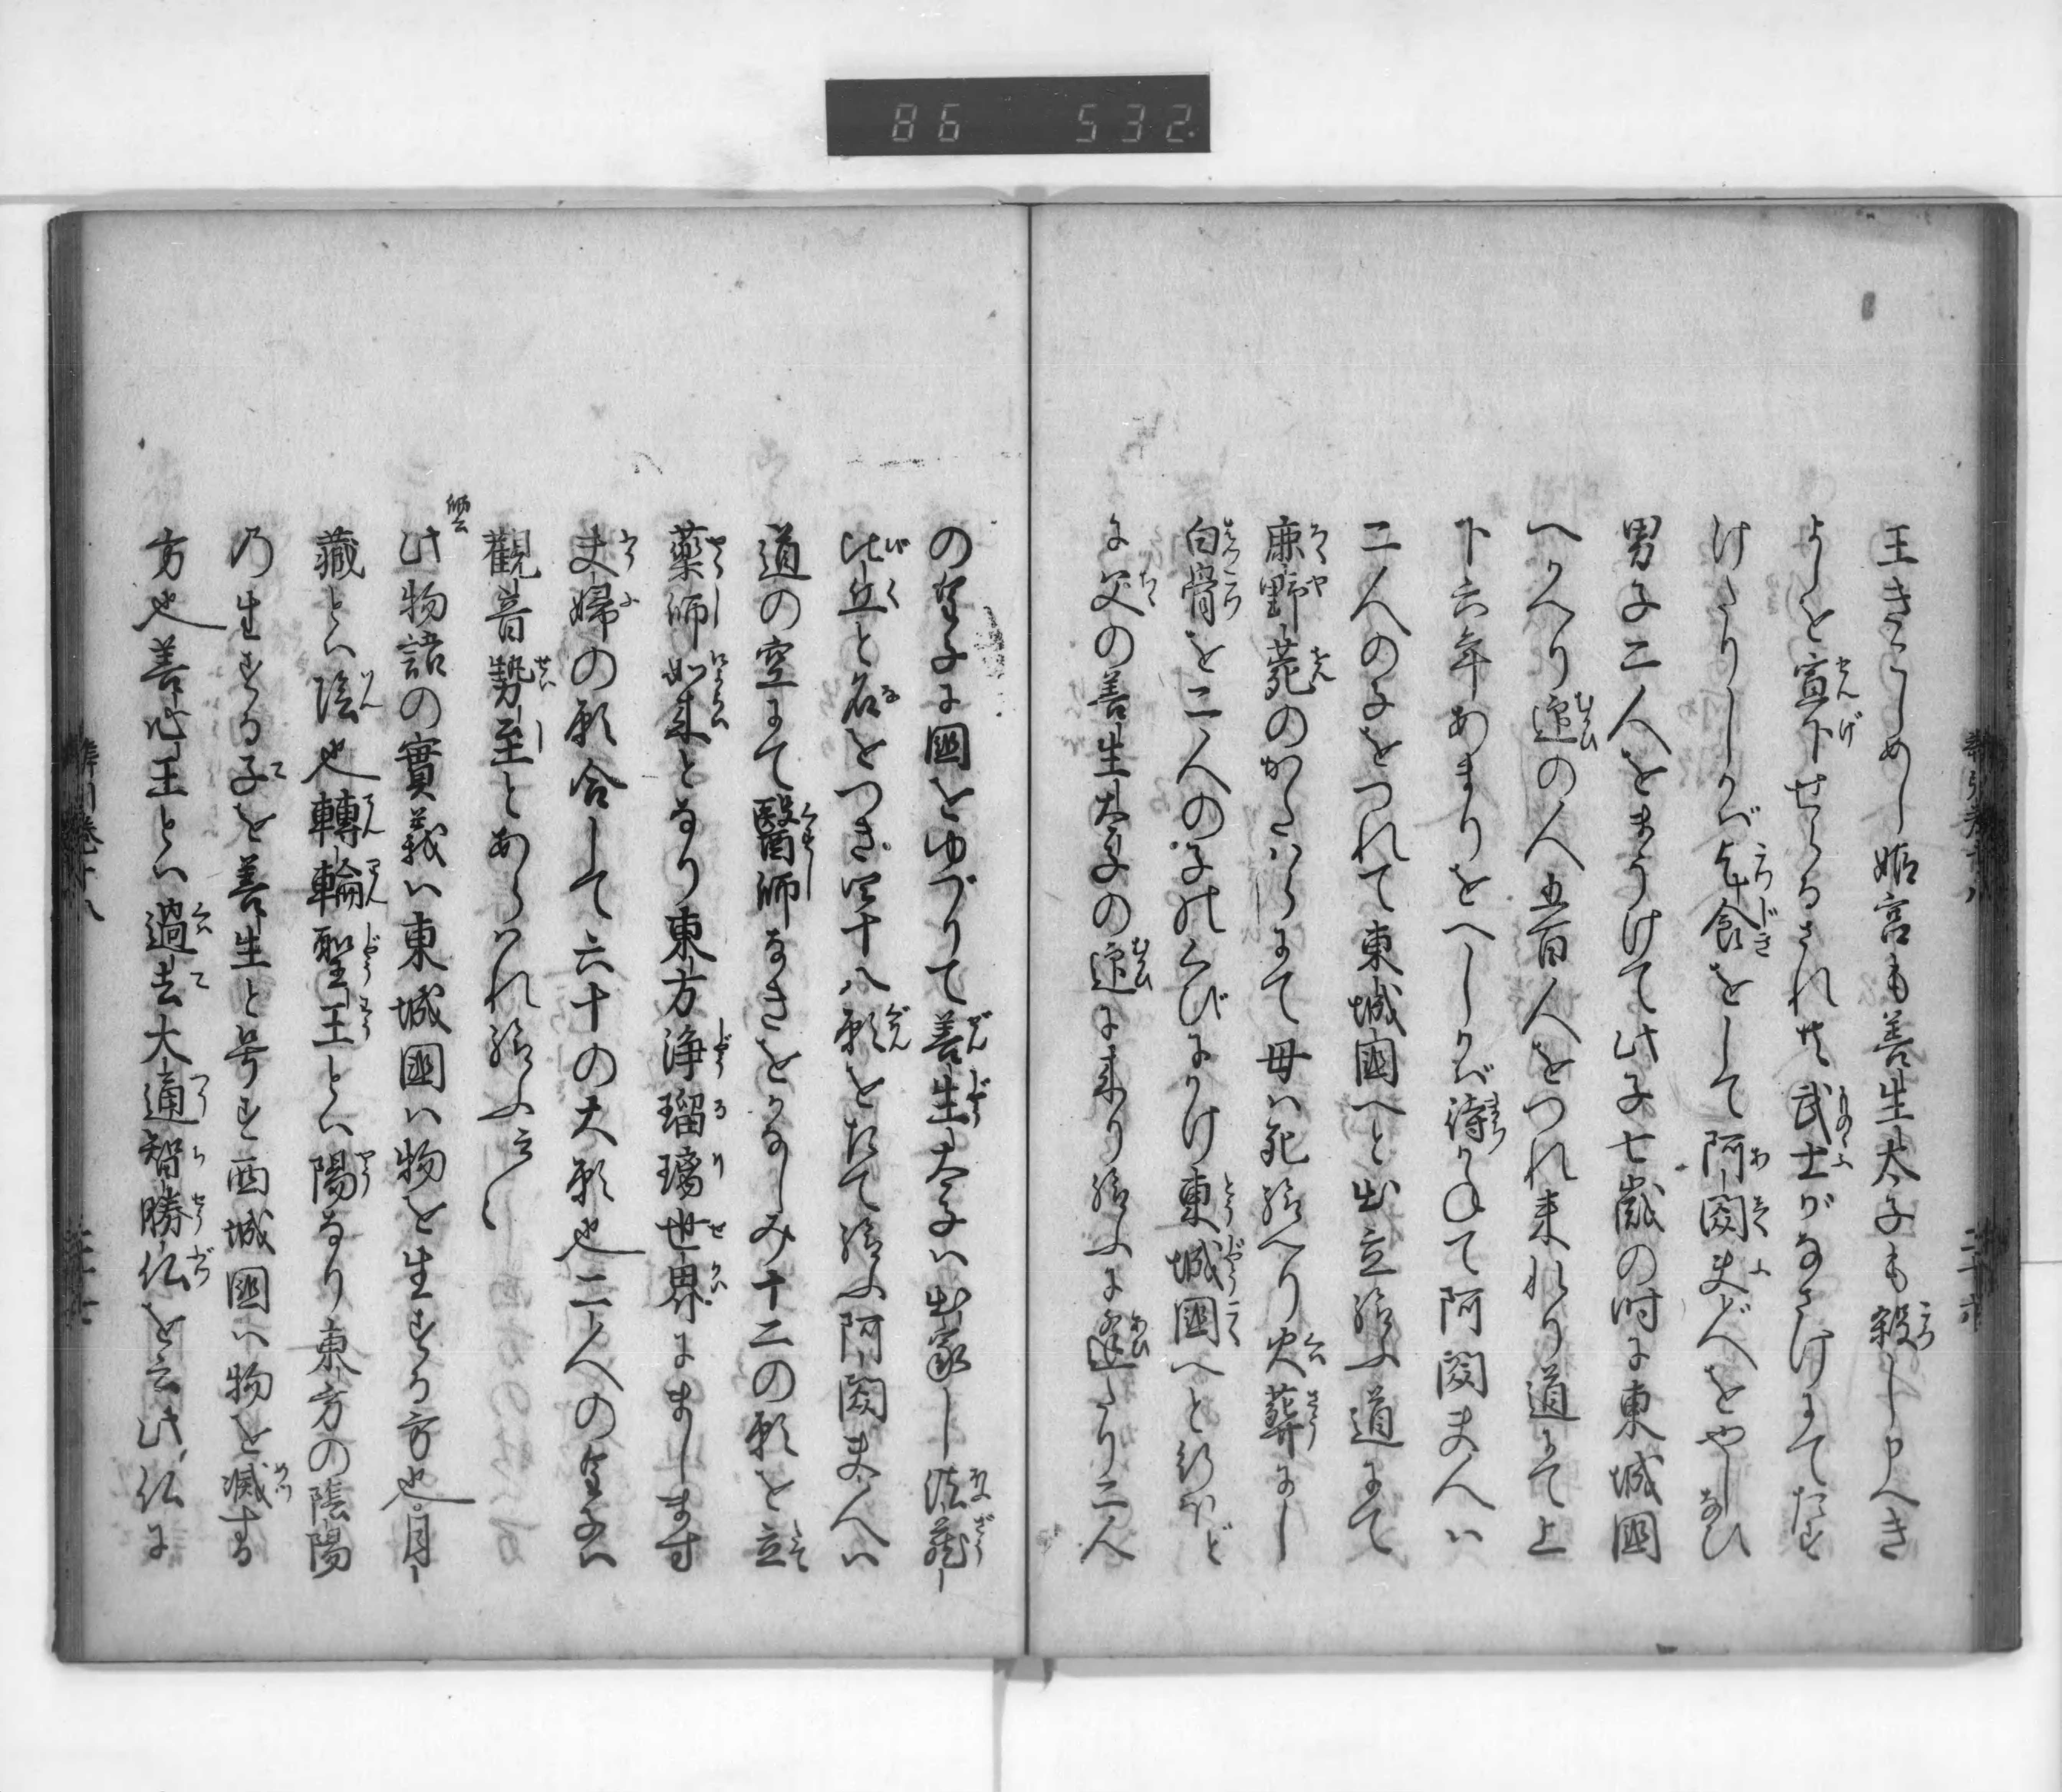 86 532
王きこしめし姫宮も善生太子も殺し申べき
よしを宣下せらるされ共武士がなさけにてたす
けたりしかバ乞食をして阿閦夫人をやしなひ
男子二人をまうけて此子七歳の時に東城國
へかへり迎の人五百人をつれ来れり道にて上
下六年あまりをへしかバ待かねて阿閦夫人ハ
二人の子をつれて東城國へと出立給ふ道にて
麻野菀のかたハらにて母ハ死給へり火葬にし
白骨を二人の子のくびにかけ東城國へと行ほど
に父の善生太子の迎に来り給ふに逢たり二人
の皇子に國をゆづりて善生太子ハ出家し法蔵
比丘と名をつき四十八願をたて給ふ阿閦夫人ハ
道の空にて醫師なきをかなしみ十二の願を立
藥師如来となり東方浄瑠璃世界にまします
夫婦の願合して六十の大願也二人の皇子ハ
觀音勢至とあらハれ給ふ云〱
師云
此物語の實義ハ東城國ハ物を生ずる方也月
藏とハ陰也轉輪聖王とハ陽なり東方の陰陽
乃生ずる子を善生と号す西城國ハ物を滅する
方也善心王とハ過去大通智勝仏を云此仏に